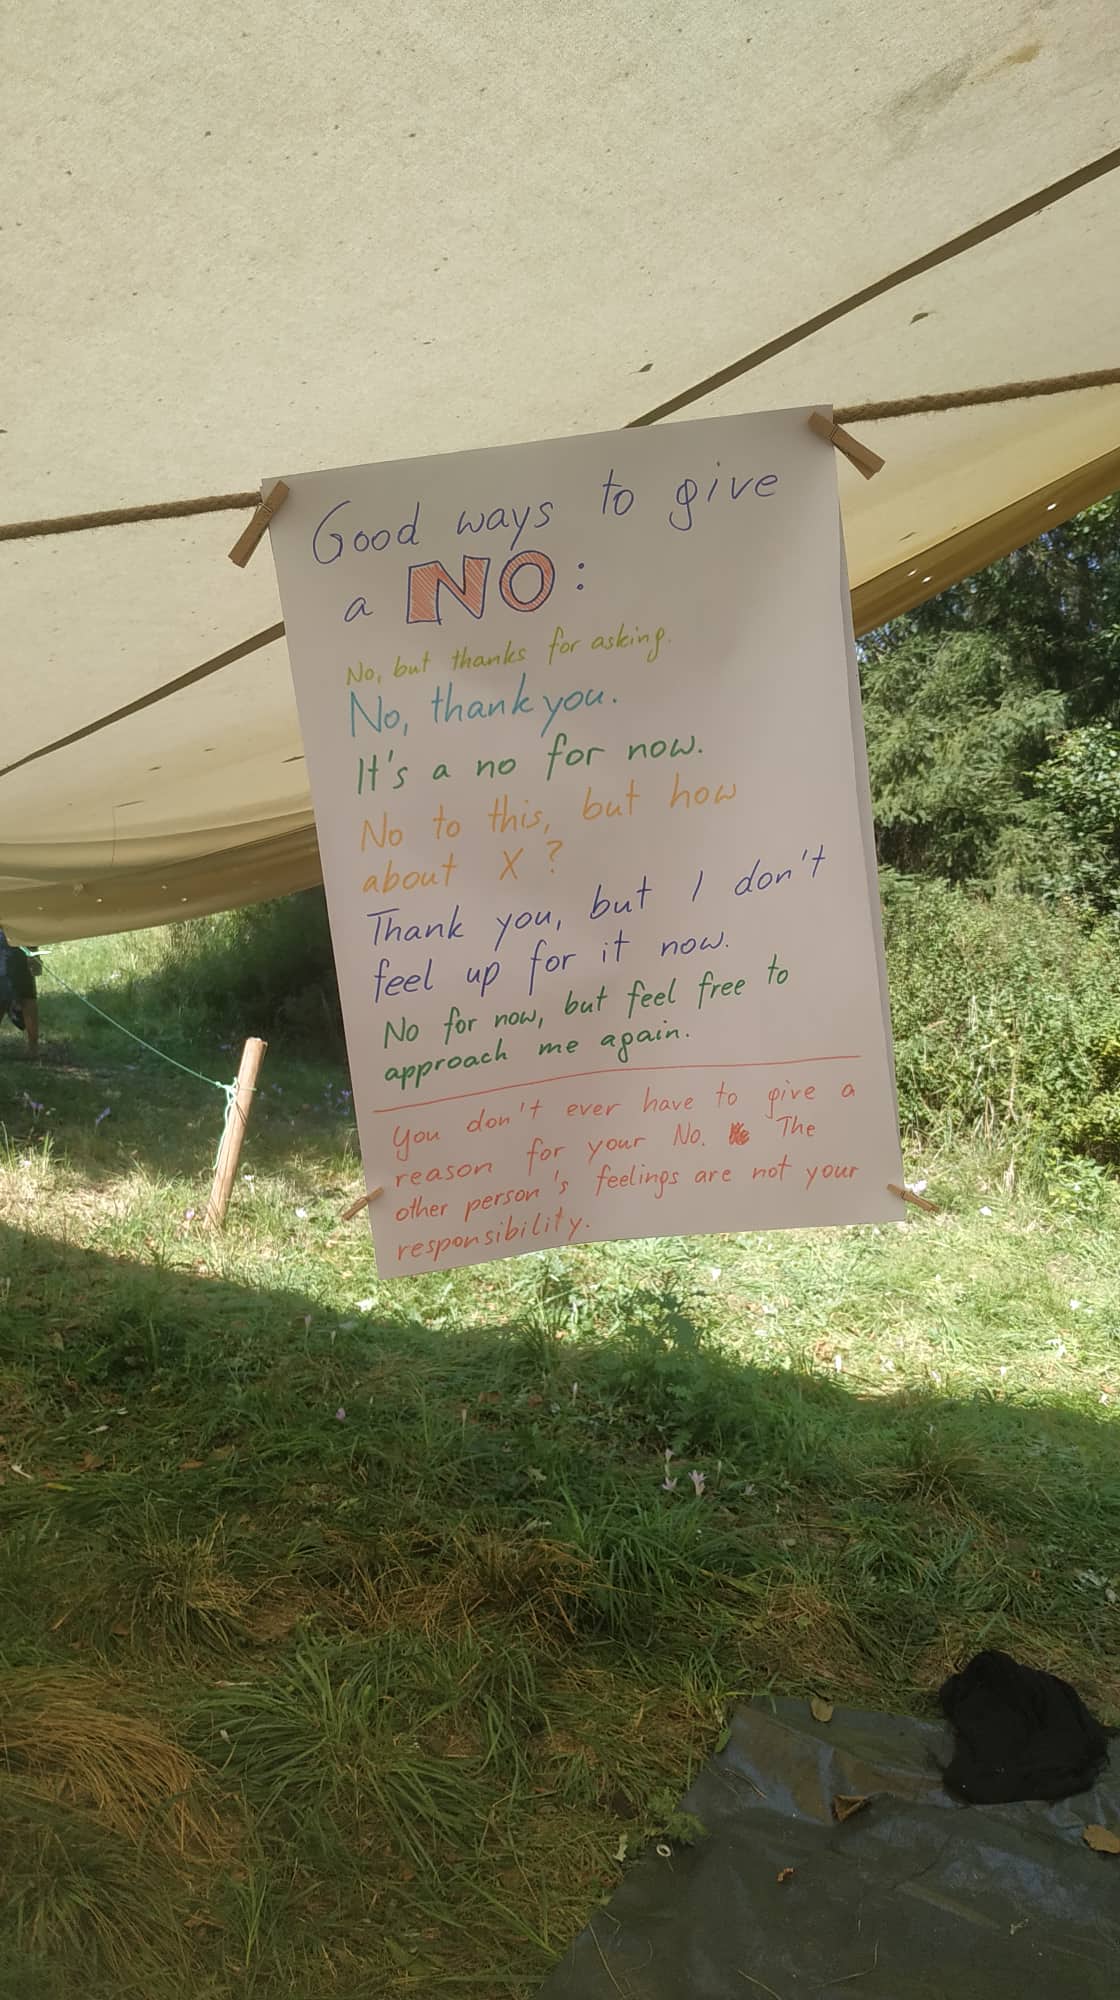 Good ways to give
a NO:
No, but thanks for asking.
No, thank you.
It's a no for now.
No to this, but how
about X?
Thank you, but I don't
feel up for it now.
No for now, but feel free to
approach me again.
You don't ever have to give a
reason for your No. The
other person's feelings are not your
responsibility.